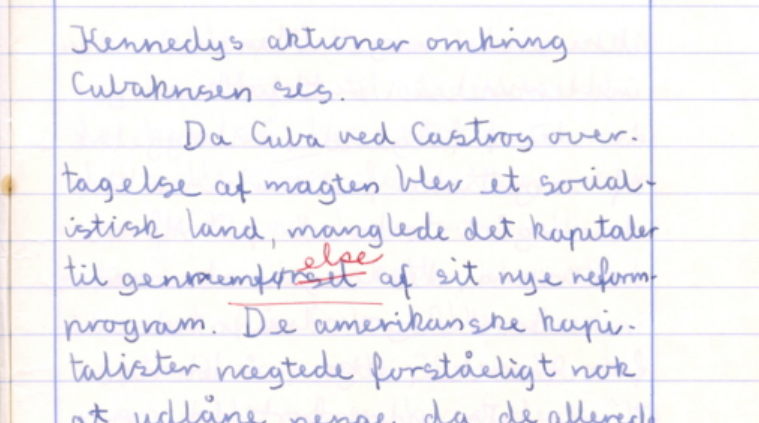 Kennedys aktioner omkring
Cubakrisen ses.
Da Cuba ved Castros over-
tagelse af magten blev et social-
istisk land, manglede det kapitaler
else
til gennemførsel af sit nye reform-
program. De amerikanske kapi-
talister nægtede forståeligt nok
at udlåne penge, da de allerede